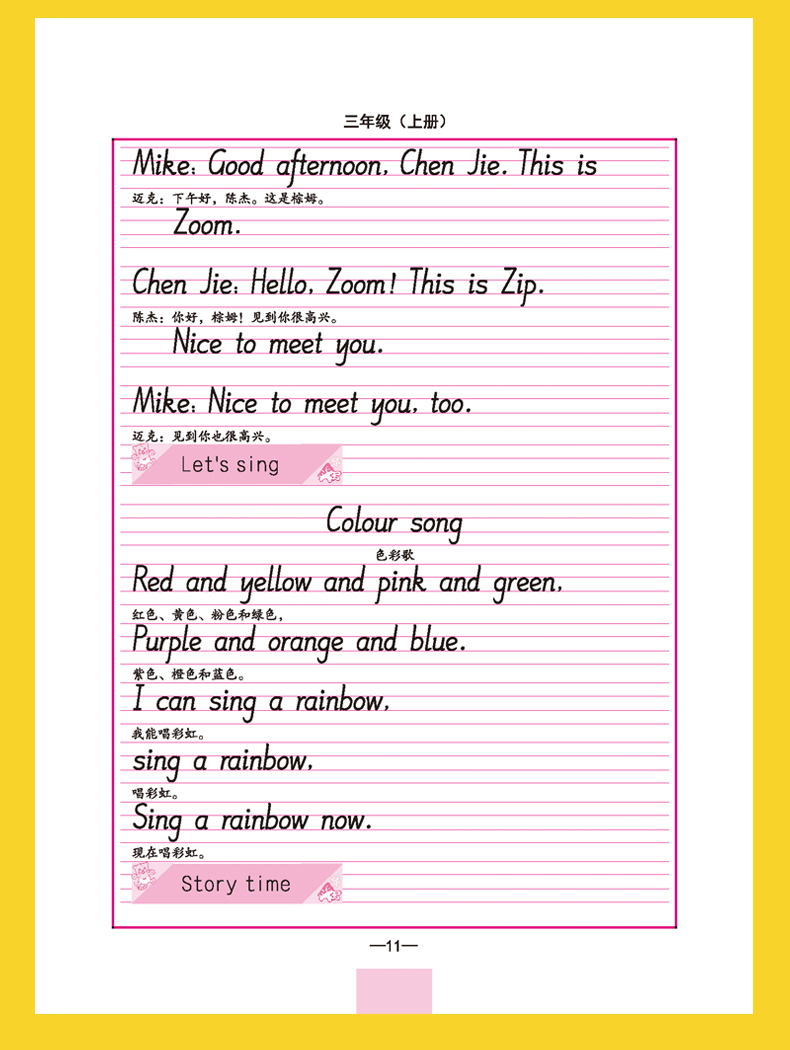 三年级（上册）
Mike: Good afternoon, Chen Jie. This is
迈克：下午好，陈杰。这是棕姆。
Zoom.
Chen Jie: Hello, Zoom! This is Zip.
陈杰：你好，棕姆！见到你很高兴。
Nice to meet you.
Mike: Nice to meet you, too.
迈克：见到你也很高兴。
Let's sing
Colour song
色彩歌
Red and yellow and pink and green,
红色、黄色、粉色和绿色，
Purple and orange and blue.
紫色、橙色和蓝色。
I can sing a rainbow,
我能唱彩虹。
sing a rainbow,
唱彩虹。
Sing a rainbow now.
现在唱彩虹。
Story time
—11—